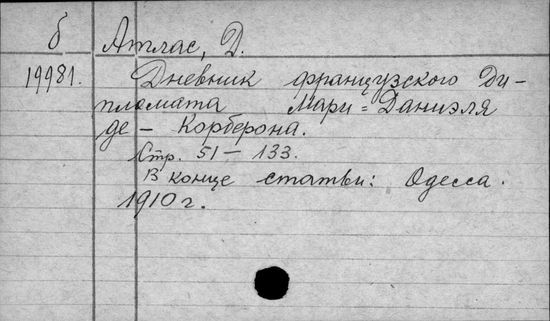 б
Атлас, Д.
19981.
Дневник французского Ди-
пломата Мари=Даниэля
де - Корберона.
Стр. 51 - 133.
В конце статьи: Одесса.
1910 г.